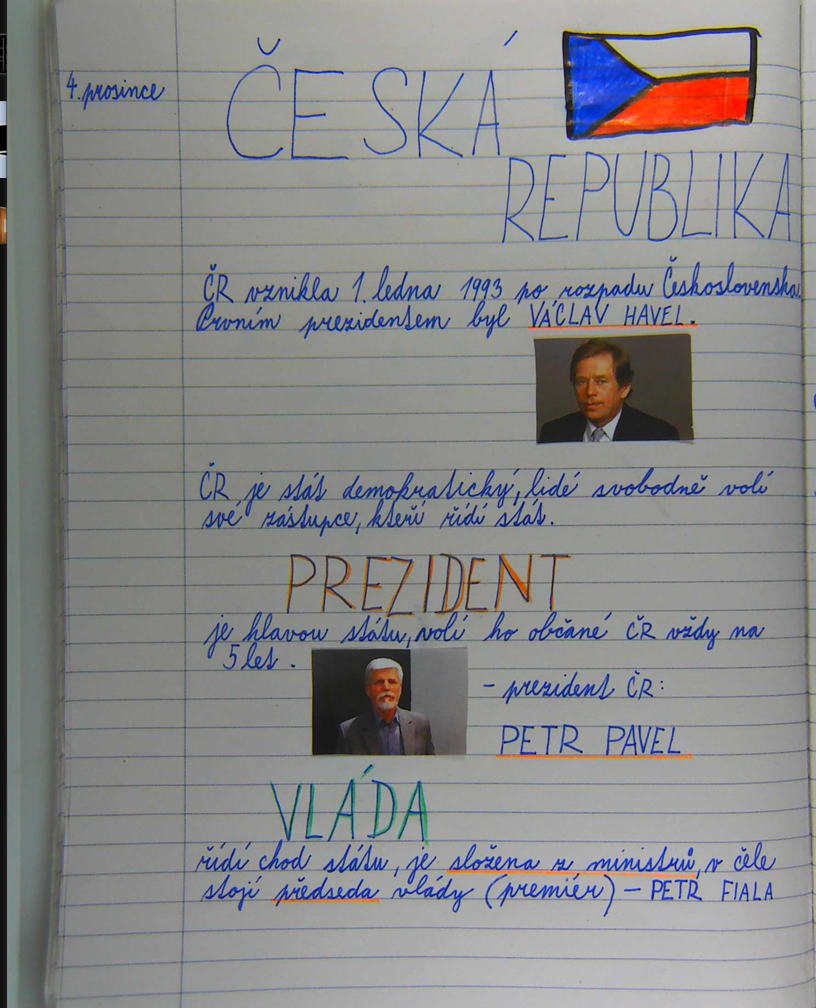 4. prosince
ČESKÁ
REPUBLIKA
ČR vznikla 1. ledna 1993 po rozpadu Československa.
Prvním prezidentem byl VÁCLAV HAVEL.
ČR je stát demokratický, lidé svobodně volí
své zástupce, kteří řídí stát.
PREZIDENT
je hlavou státu, volí ho občané ČR vždy na
5 let.
- prezident ČR:
PETR PAVEL
VLÁDA
řídí chod státu, je složena z ministrů, v čele
stojí předseda vlády (premiér) - PETR FIALA